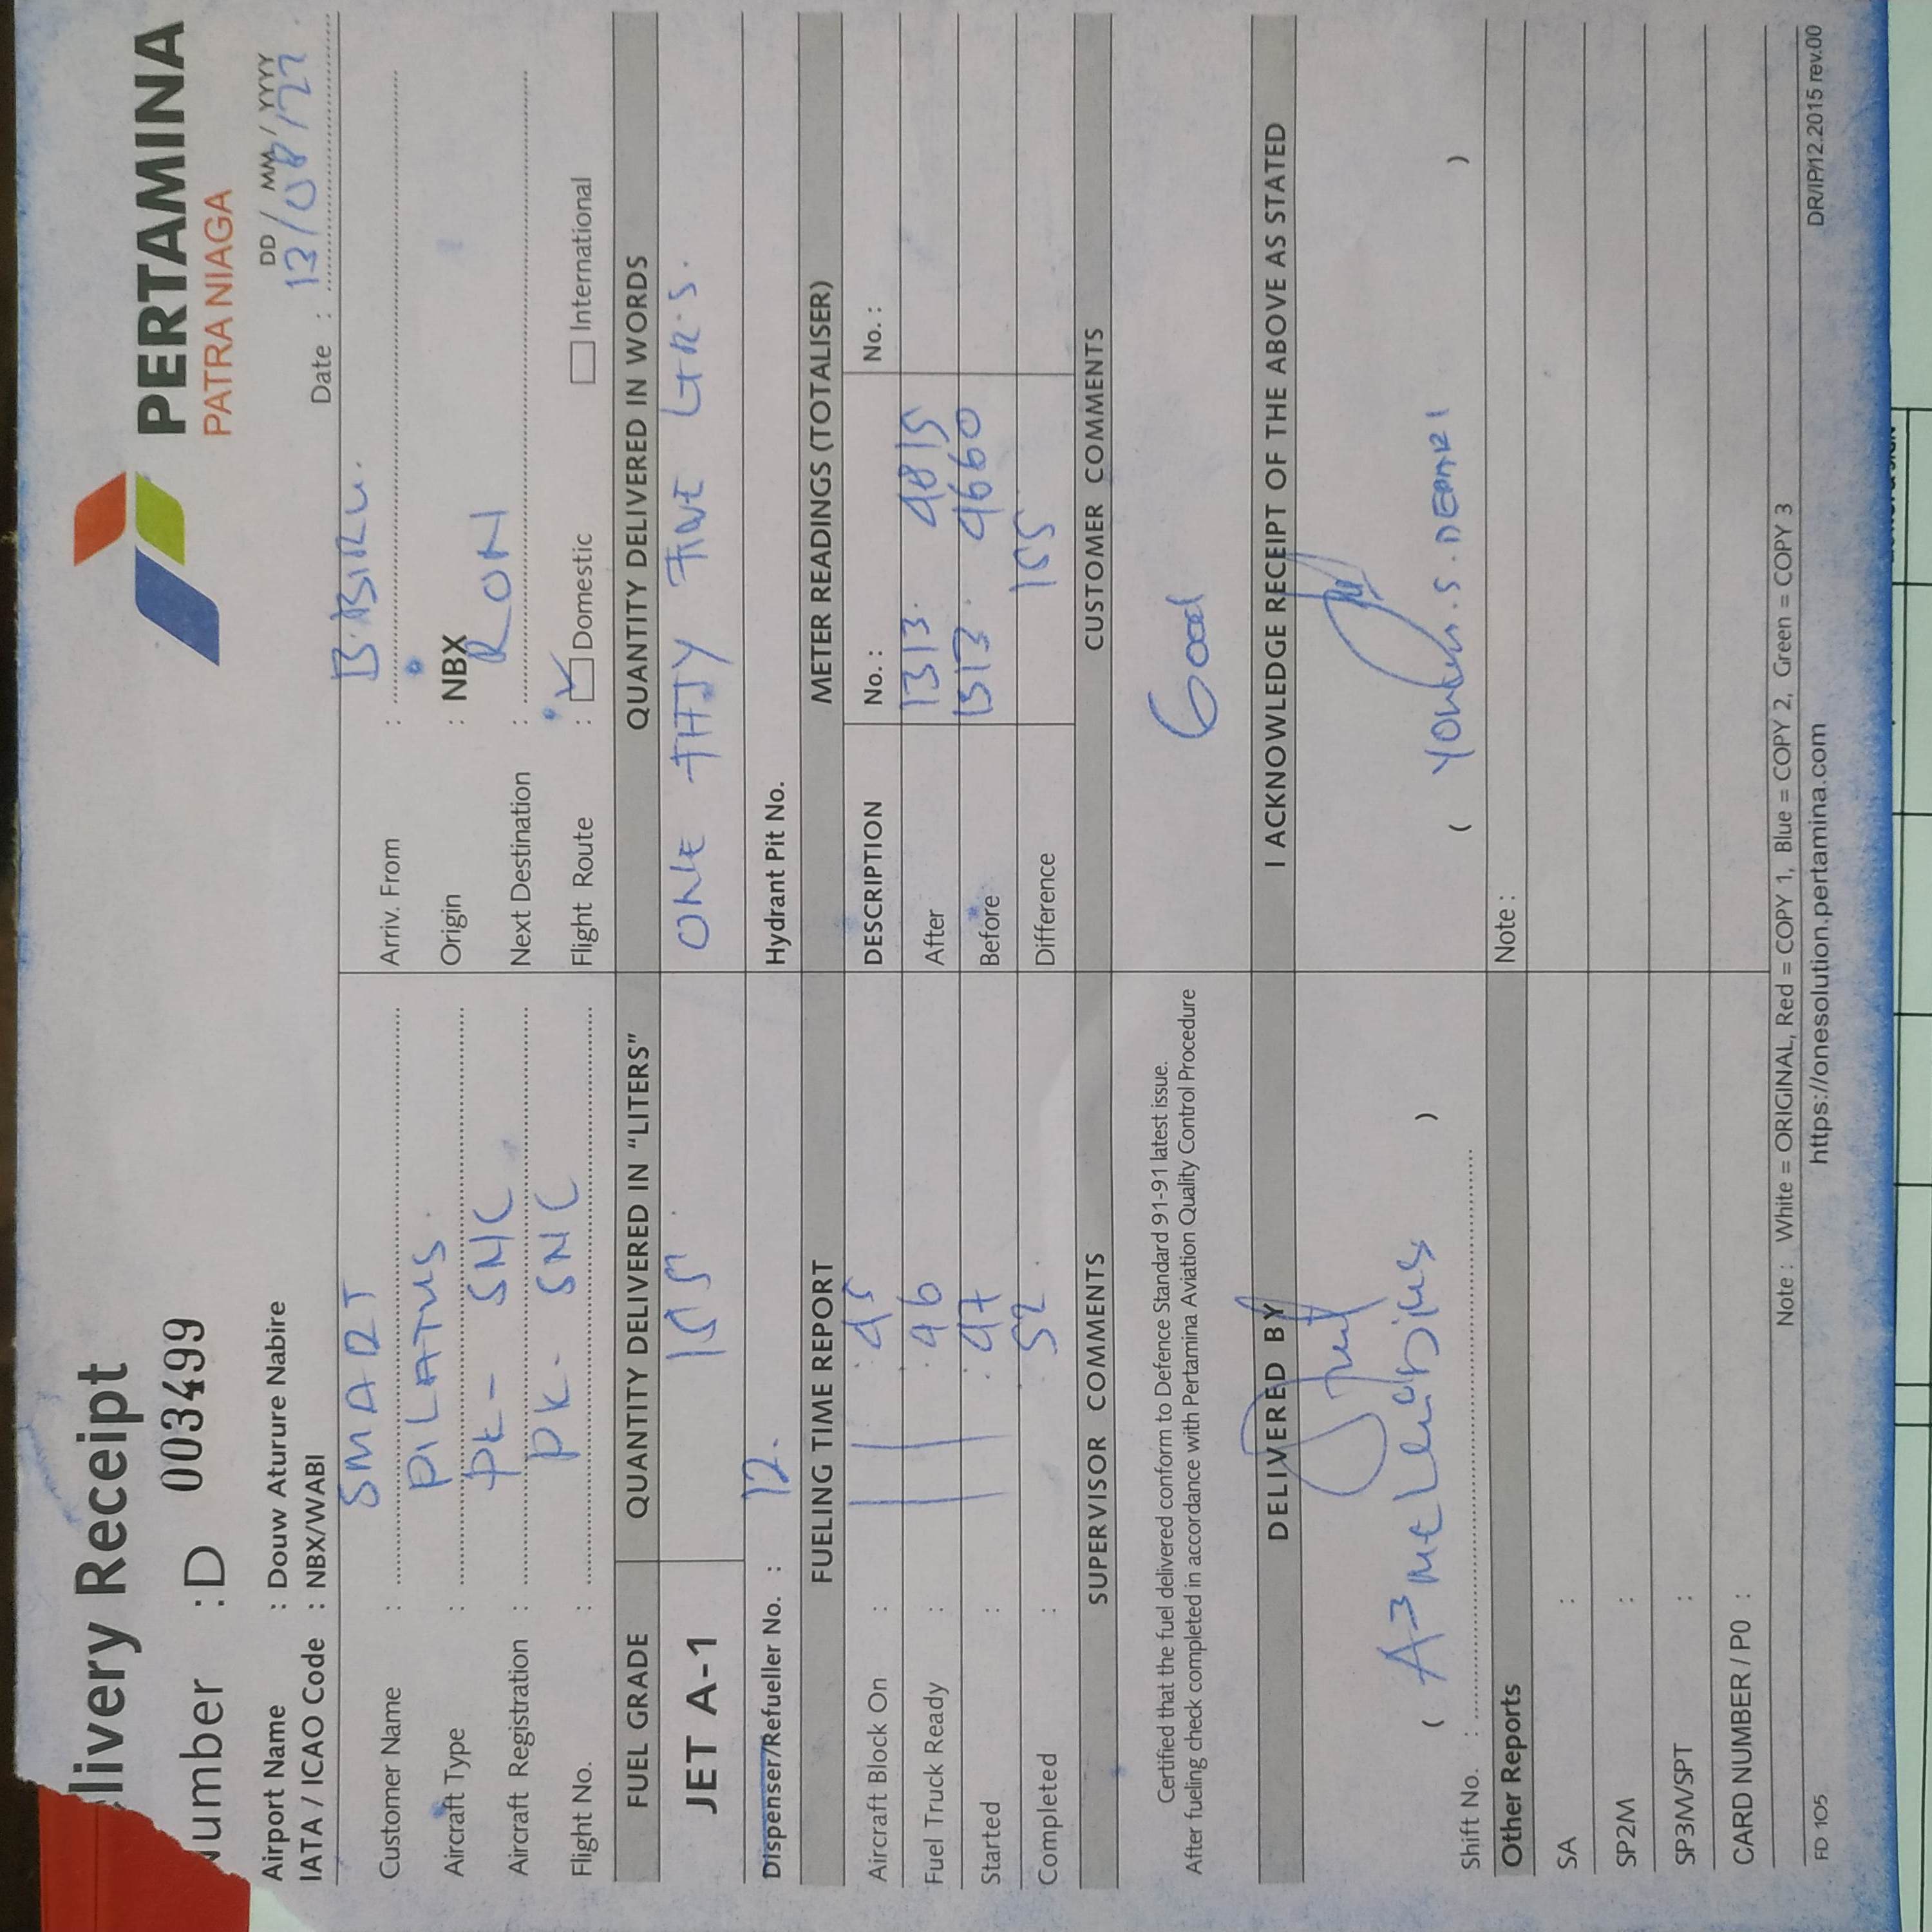 livery Receipt
PERTAMINA
PATRA NIAGA
Number : D 003499
DD / MM / YYYY
Date : 13/08/22
Airport Name : Douw Aturure Nabire
IATA / ICAO Code : NBX/WABI
Customer Name : SMART
Arriv. From : B.BIRU.
Aircraft Type : PILATUS.
Origin : NBX
Aircraft Registration : PK- SNC
Next Destination : RON
Flight No. : PK- SNC
Flight Route : Domestic International
FUEL GRADE QUANTITY DELIVERED IN "LITERS" QUANTITY DELIVERED IN WORDS
JET A-1 155. ONE FITJY FIVE LTR.S.
Dispenser/Refueller No. : 12.
Hydrant Pit No.
FUELING TIME REPORT METER READINGS (TOTALISER)
Aircraft Block On : : 45
DESCRIPTION No. : No. :
Fuel Truck Ready : : 46
After 1313. 4815
Started : : 47
Before 1313. 4660
Completed : : 52.
Difference 155
SUPERVISOR COMMENTS CUSTOMER COMMENTS
Certified that the fuel delivered conform to Defence Standard 91-91 latest issue.
After fueling check completed in accordance with Pertamina Aviation Quality Control Procedure
Good
DELIVERED BY I ACKNOWLEDGE RECEIPT OF THE ABOVE AS STATED
Shift No. :
Other Reports Note :
SA :
SP2M :
SP3M/SPT :
CARD NUMBER / P0 :
Note : White = ORIGINAL, Red = COPY 1, Blue = COPY 2, Green = COPY 3
FD 105 https://onesolution.pertamina.com DR/IP/12.2015 rev.00